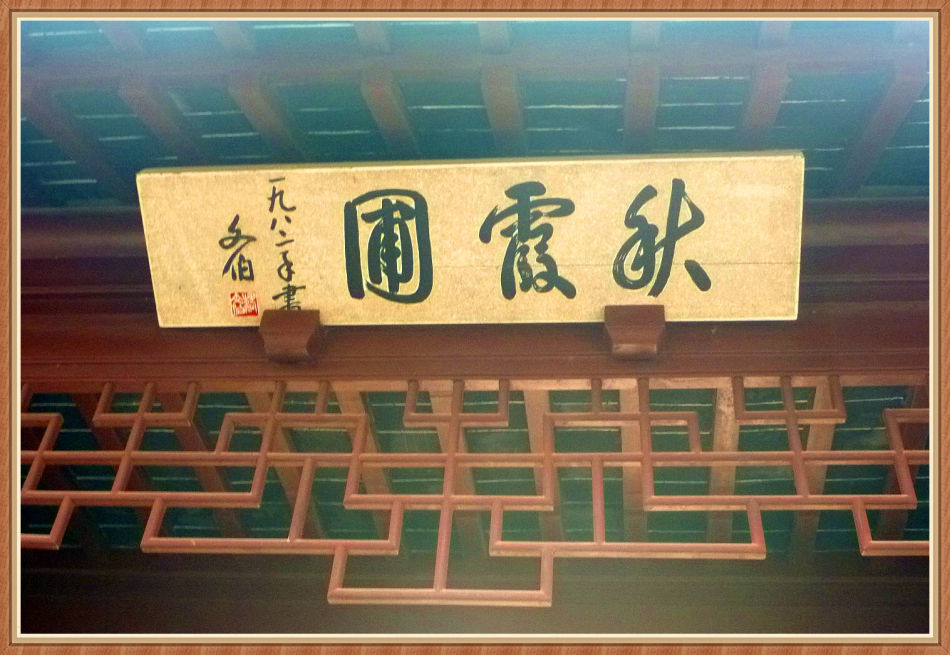 秋霞圃
一九八二年書
文伯